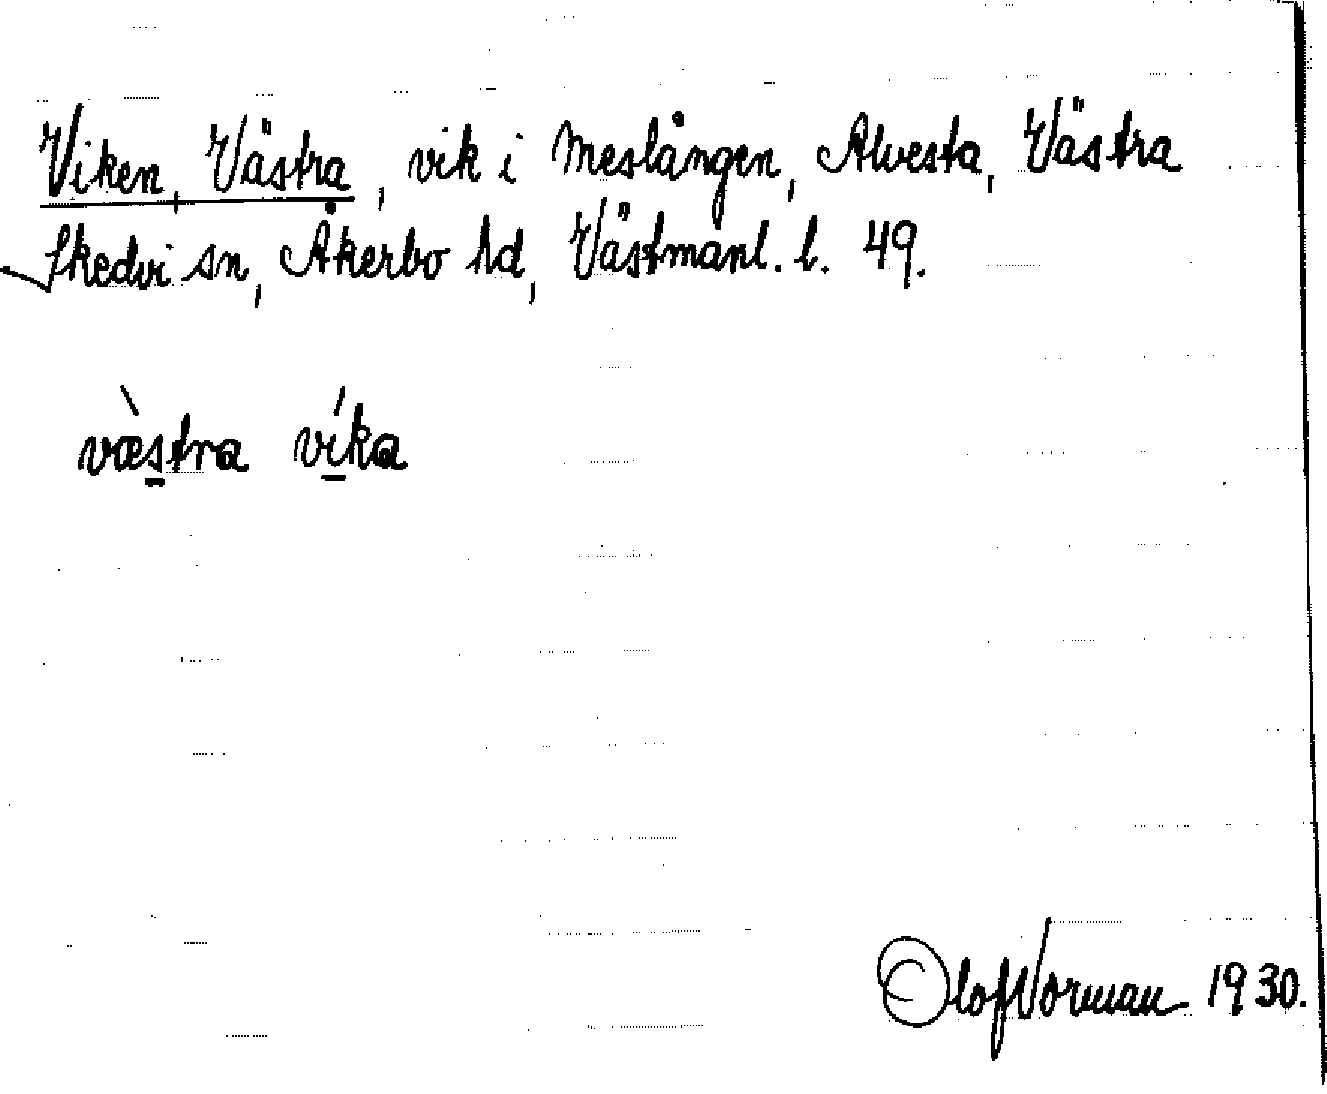 Viken, Västra, vik i Meslången, Alvesta, Västra
Skedvi sn, Åkerbo hd, Västmanl. l. 49.
væ̀stra víka
Olof Norman 1930.